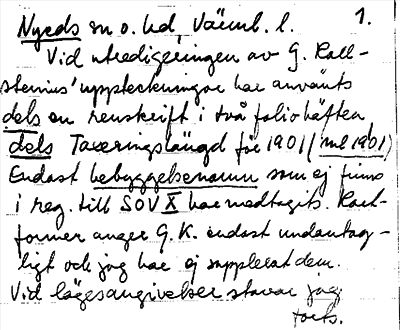 1.
Nyeds sn o. hd, Värml. l.
Vid utredigeringen av G. Kall-
stenius' uppteckningar har använts
dels en renskrift i två foliohäften
dels Taxeringslängd för 1901 (ml 1901)
Endast bebyggelsenamn som ej finns
i reg. till SOV X har medtagits. Kart-
former anger G. K. endast undantag-
ligt och jag har ej supplerat dem.
Vid lägesangivelser stavar jag
forts.